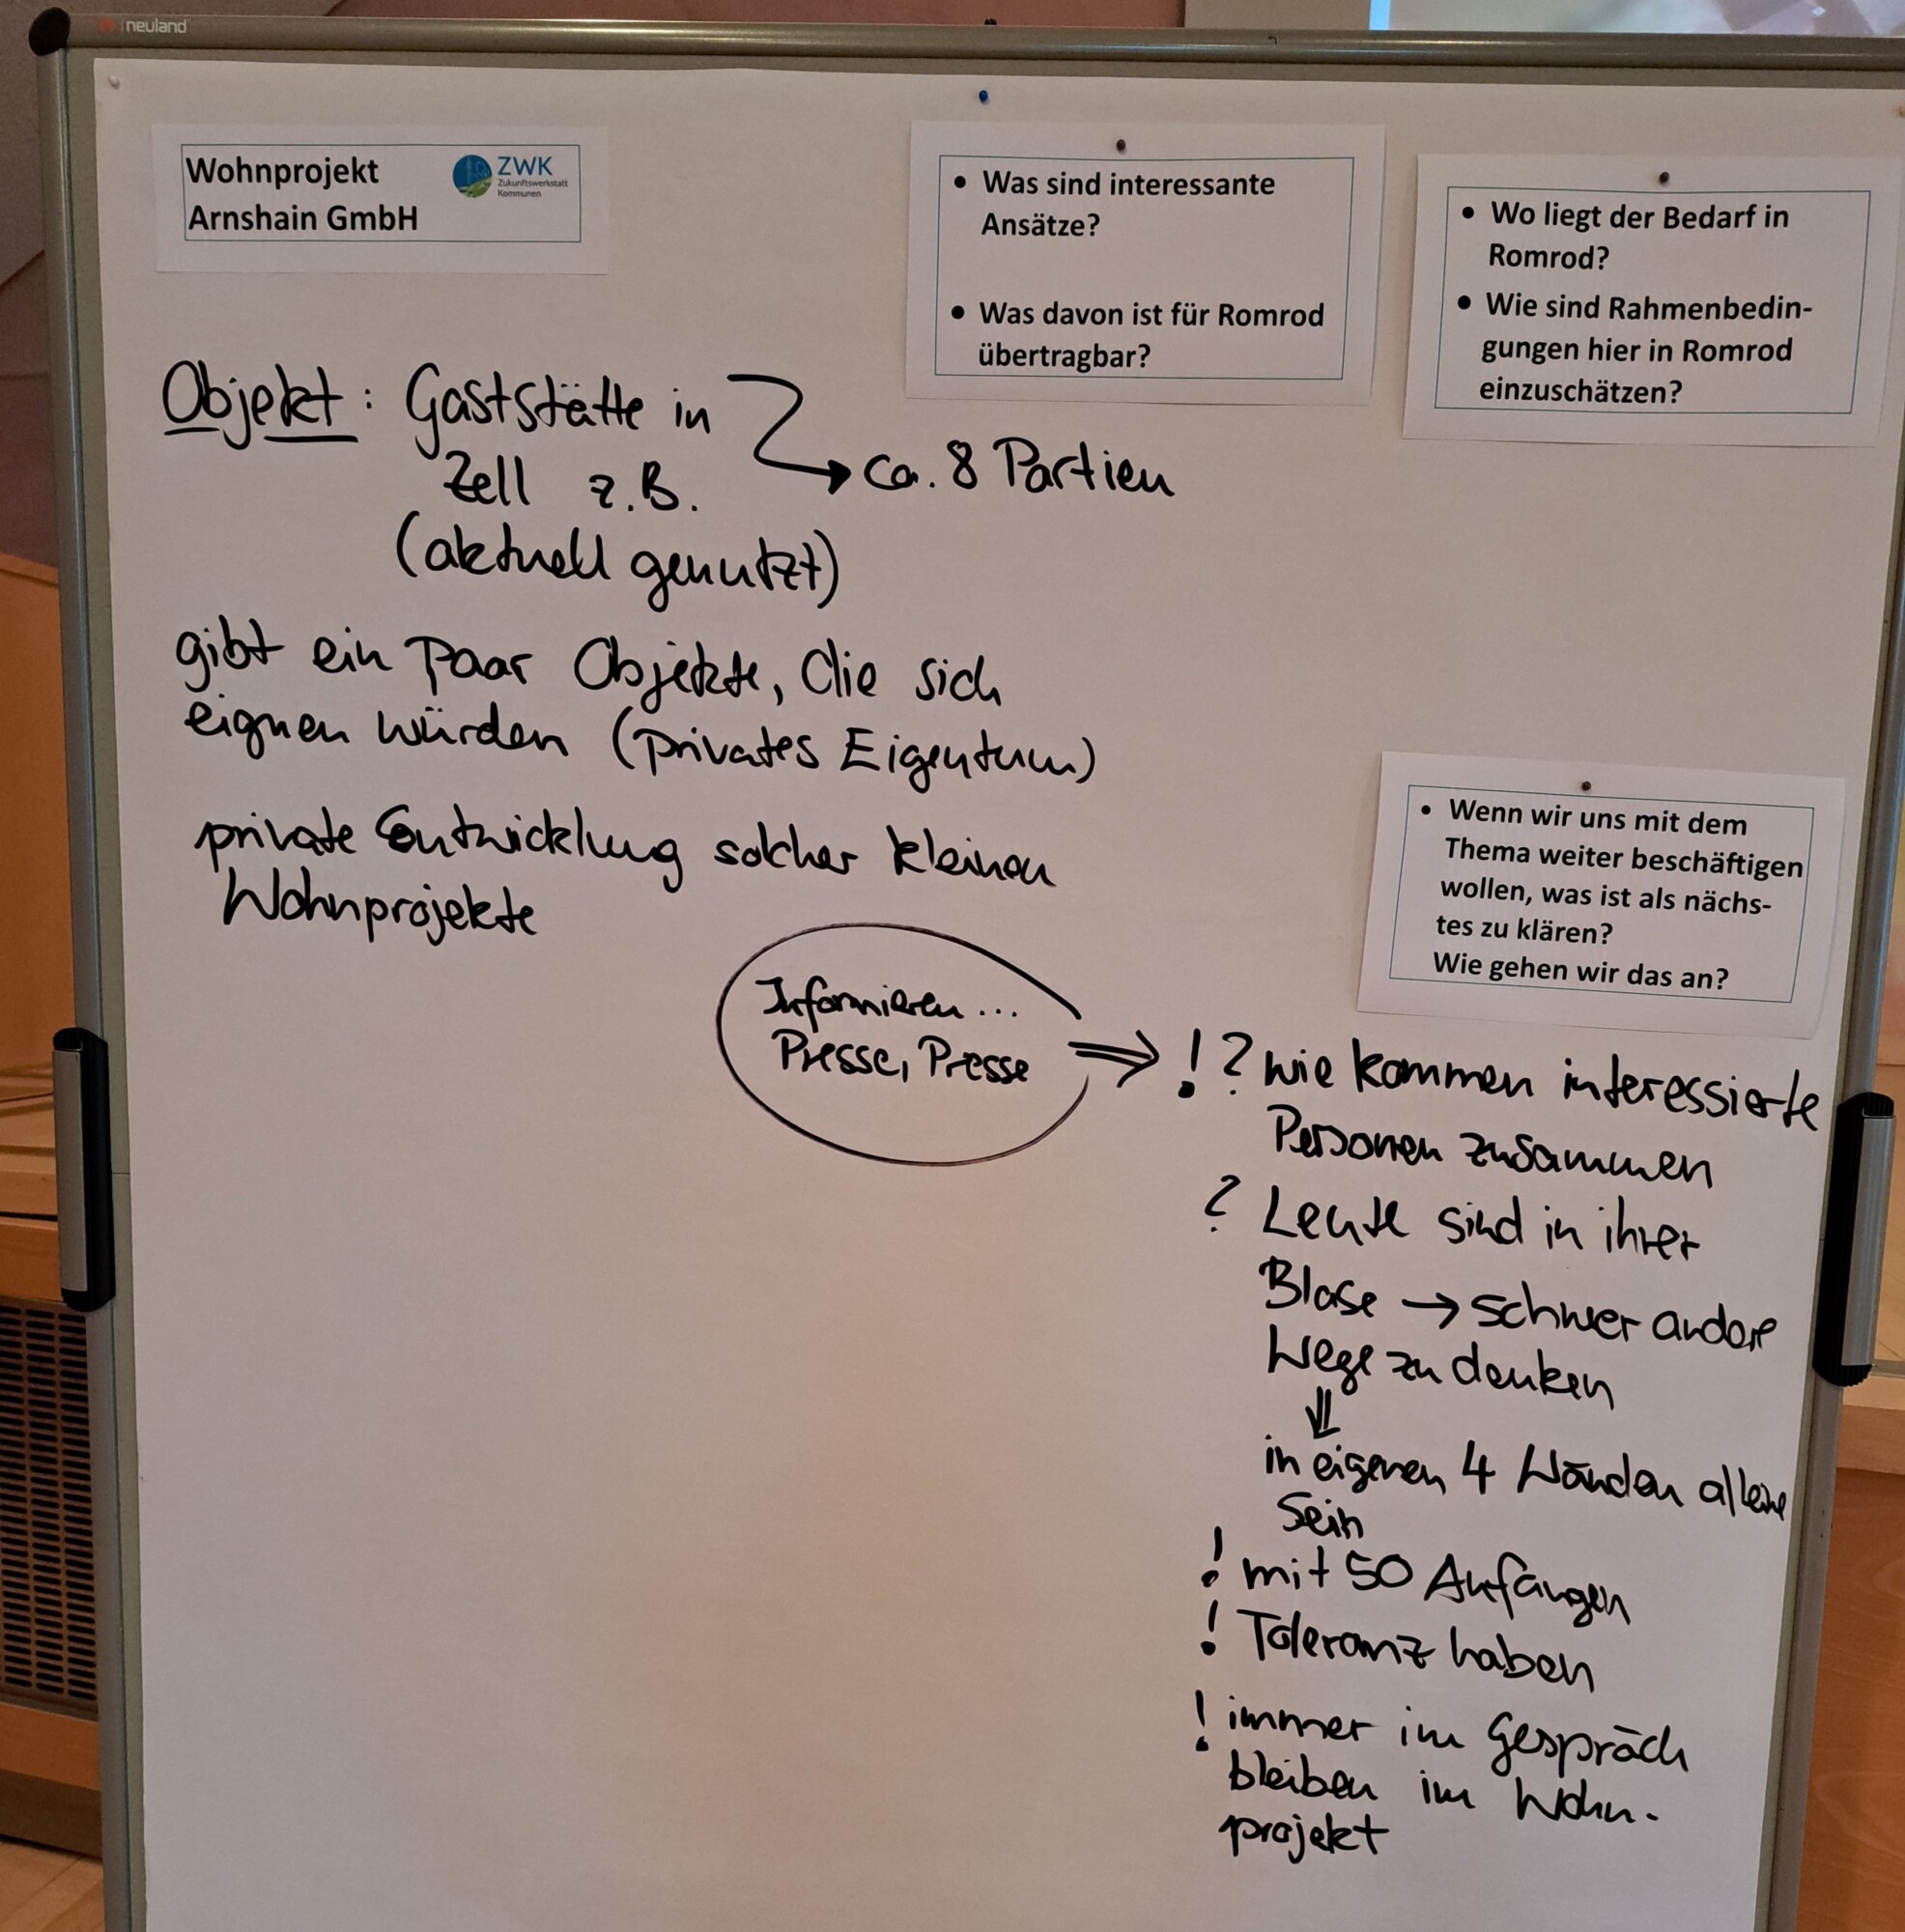 neuland
Wohnprojekt
Arnshain GmbH
ZWK
Zukunftswerkstatt
Kommunen
• Was sind interessante
Ansätze?
• Was davon ist für Romrod
übertragbar?
• Wo liegt der Bedarf in
Romrod?
• Wie sind Rahmenbedin-
gungen hier in Romrod
einzuschätzen?
Objekt: Gaststätte in
Zell z.B.
(aktuell genutzt)
→ ca. 8 Partien
gibt ein paar Objekte, die sich
eignen würden (privates Eigentum)
private Entwicklung solcher kleinen
Wohnprojekte
• Wenn wir uns mit dem
Thema weiter beschäftigen
wollen, was ist als nächs-
tes zu klären?
Wie gehen wir das an?
Informieren...
Presse, Presse
⇒ ! ? wie kommen interessierte
Personen zusammen
? Leute sind in ihrer
Blase → schwer andere
Wege zu denken
⇓
in eigenen 4 Wänden alleine
sein
! mit 50 Anfangen
! Toleranz haben
! immer im Gespräch
bleiben im Wohn-
projekt